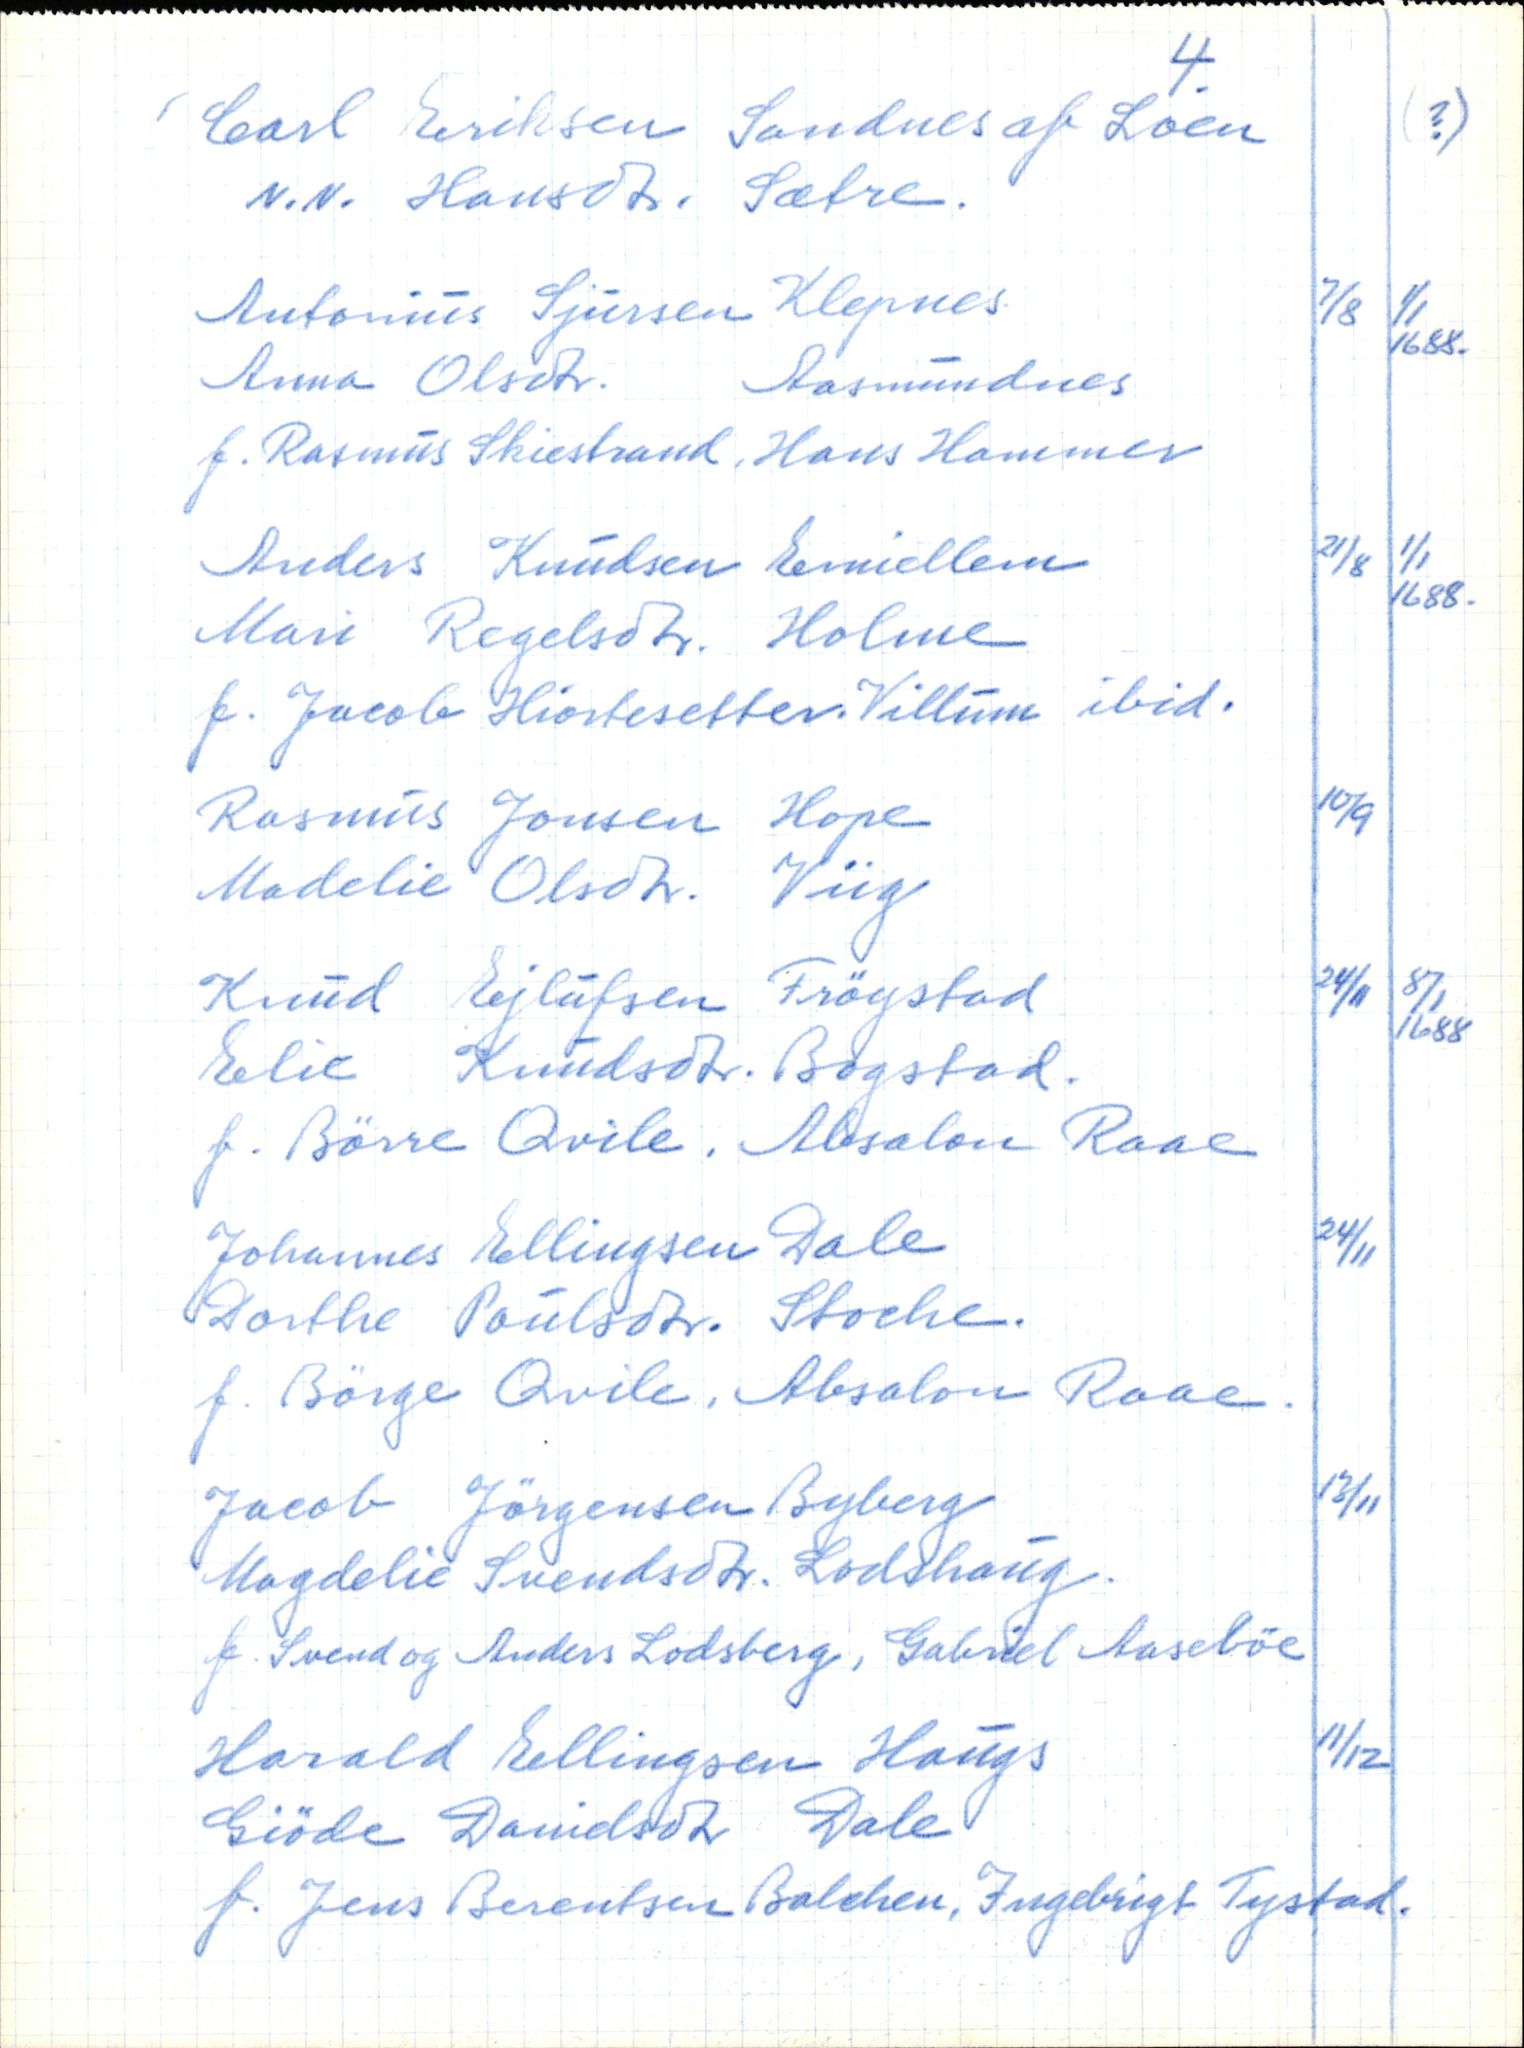 4.
Carl Eriksen Sandnes af Loen (?)
N.N. Hansdtr. Sætre.
Antonius Sjursen Klepnes 7/8 1/1
1688.
Anna Olsdtr. Aasmundnes
f. Rasmus Skiestrand, Hans Hammer
Anders Knudsen Emiellem 21/8 1/1
1688.
Mari Regelsdtr. Holme
f. Jacob Hiortesetter. Villum ibid.
Rasmus Jonsen Hope 10/9
Madelie Olsdtr. Viig
Knud Ejlufsen Fröystad 24/11 8/1
1688
Elie Knudsdtr. Bogstad.
f. Börre Qvile, Absalon Raae
Johannes Ellingsen Dale 24/11
Dorthe Poulsdtr. Stoche.
f. Börge Qvile, Absalon Raae.
Jacob Jörgensen Byberg 13/11
Magdelie Svendsdtr. Lodshaug.
f. Svend og Anders Lodsberg, Gabriel Aaseböe
Harald Ellingsen Haugs 11/12
Giöde Danielsdtr Dale
f. Jens Berentsen Balchen, Ingebrigt Tystad.